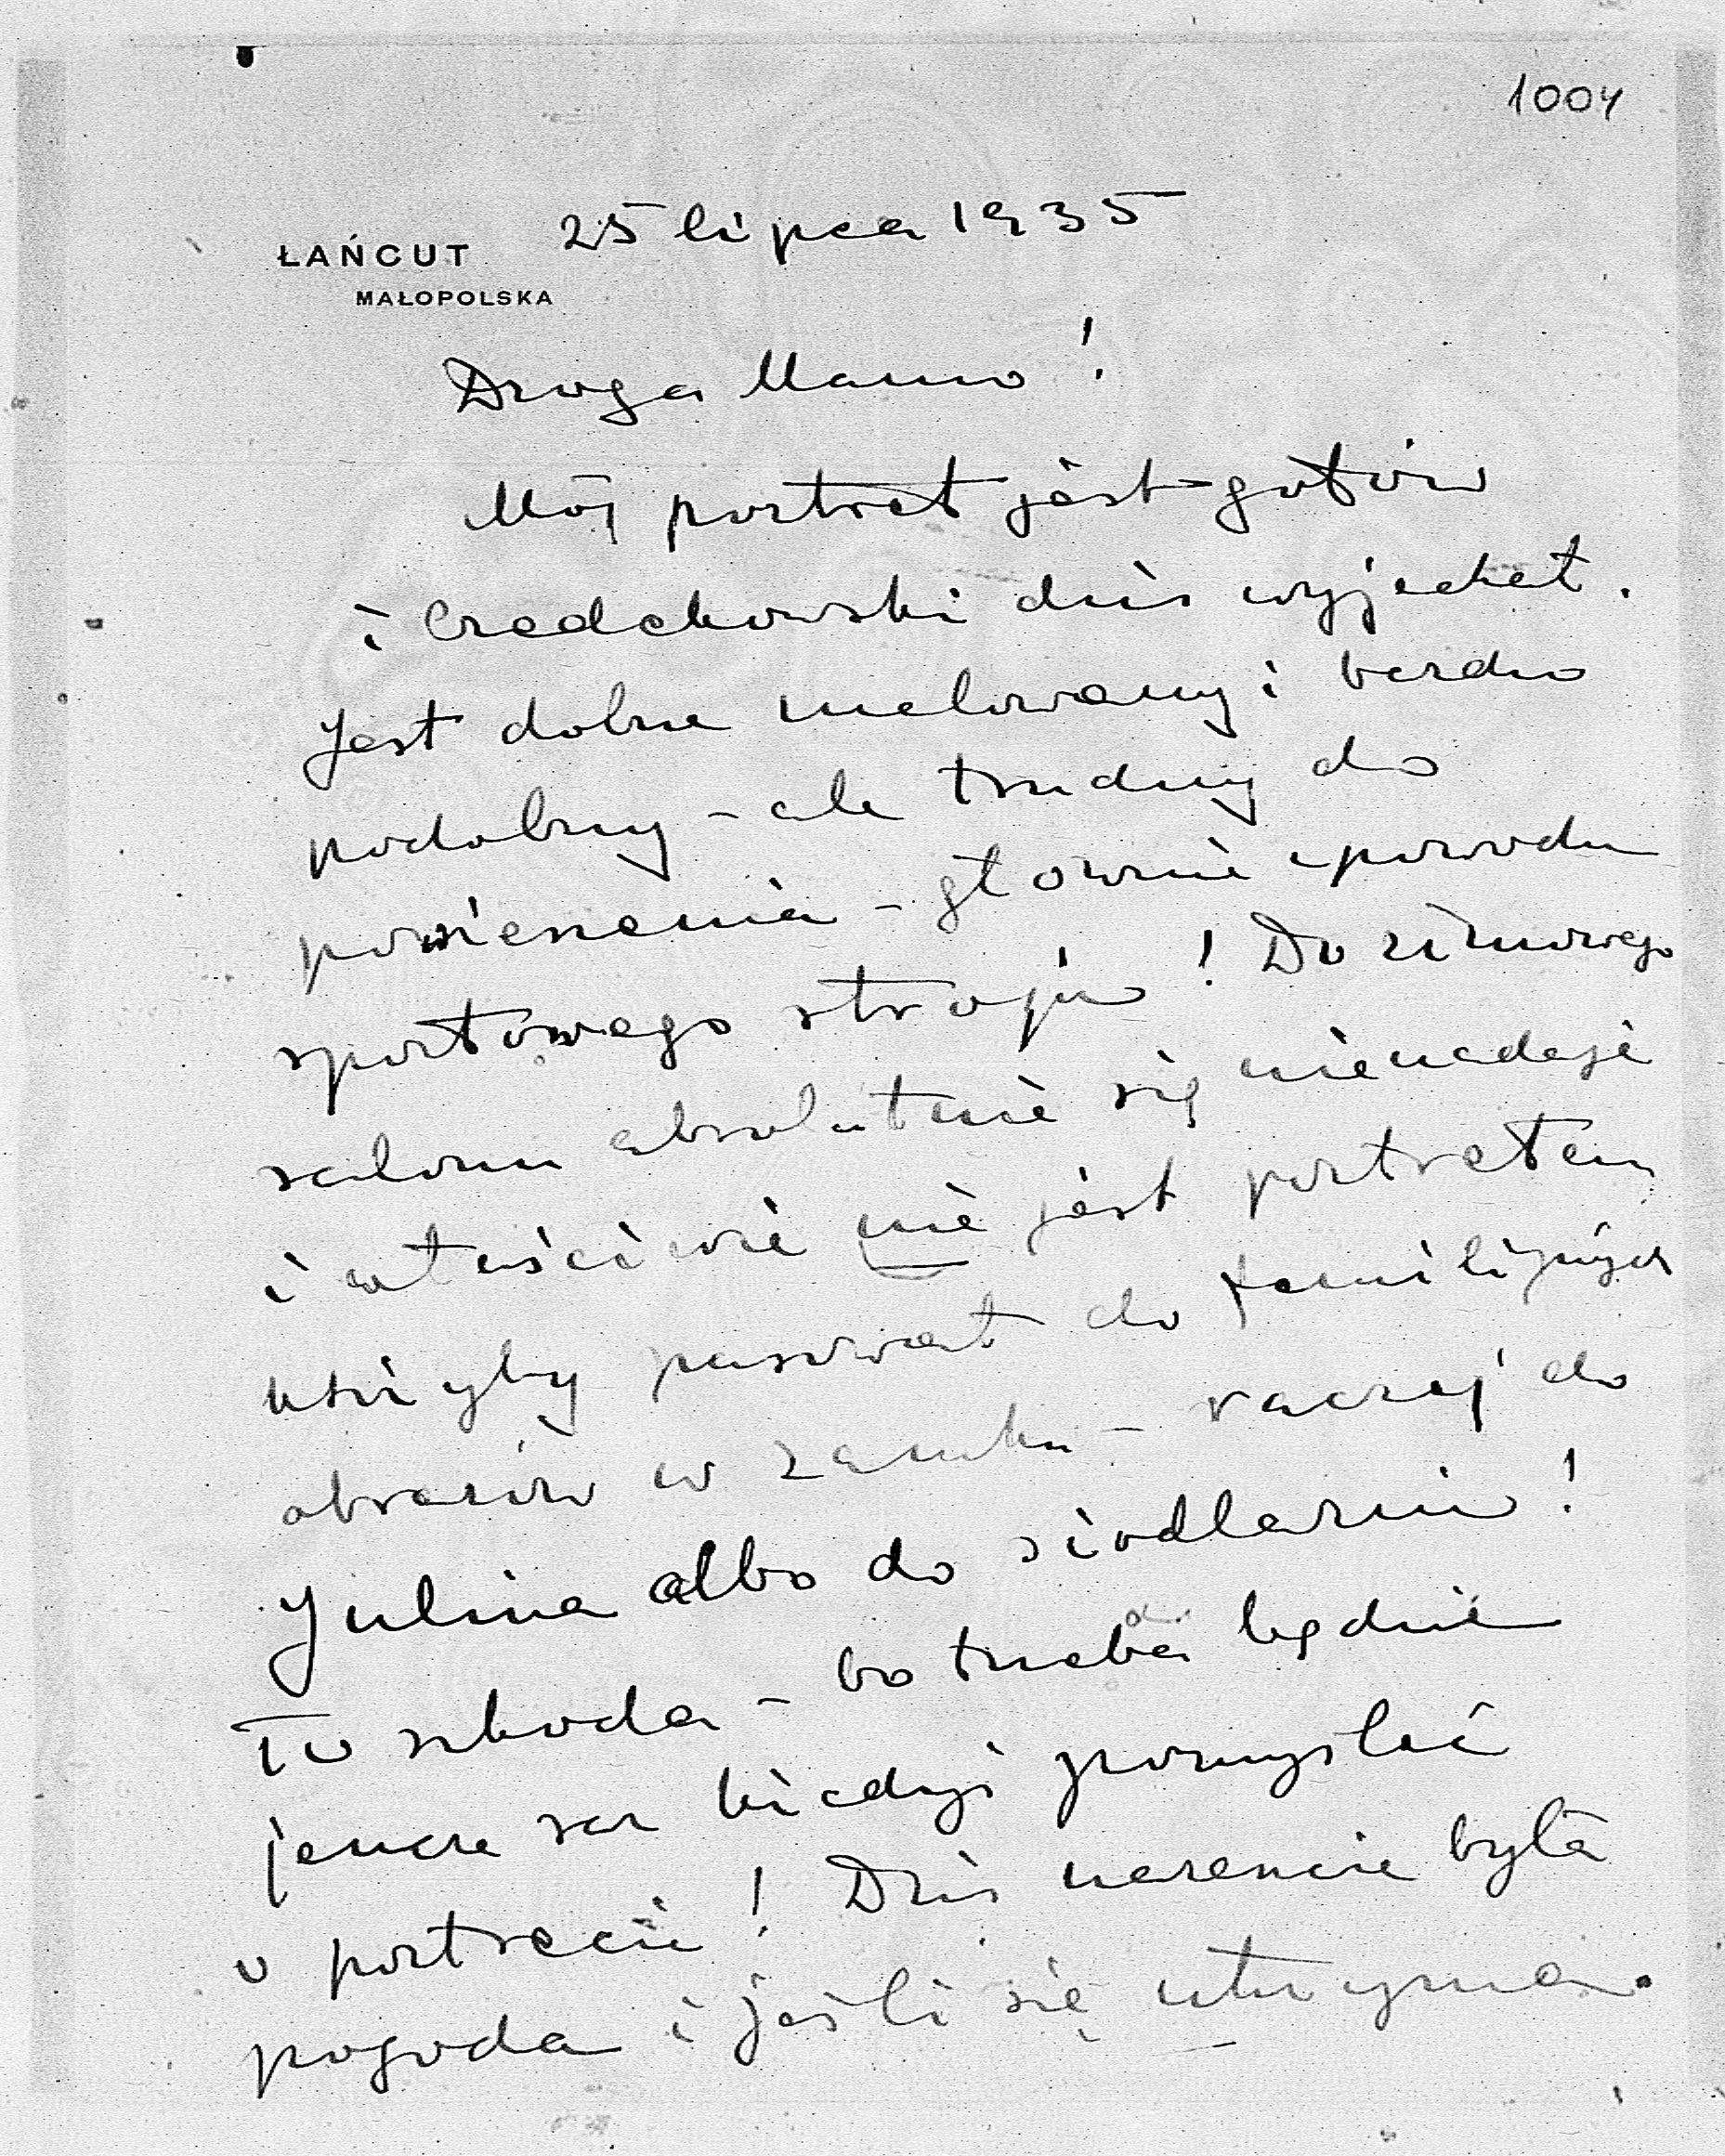 1004
25 lipca 1935
ŁAŃCUT
MAŁOPOLSKA
Droga Mamo!
Mój portret jest gotów
i Czedekowski dziś wyjechał.
Jest dobrze malowany i bardzo
podobny – ale trudny do
powieszenia – głównie z powodu
sportowego stroju! Do zimowego
salonu absolutnie się nienadaje
i właściwie nie jest portretem
któryby pasował do familijnych
obrazów w zamku – raczej do
Julina albo do siodlarni!
To szkoda – bo trzeba będzie
jeszcze raz kiedyś pomyśleć
o portrecie! Dziś nareszcie była
pogoda i jeśli się utrzyma